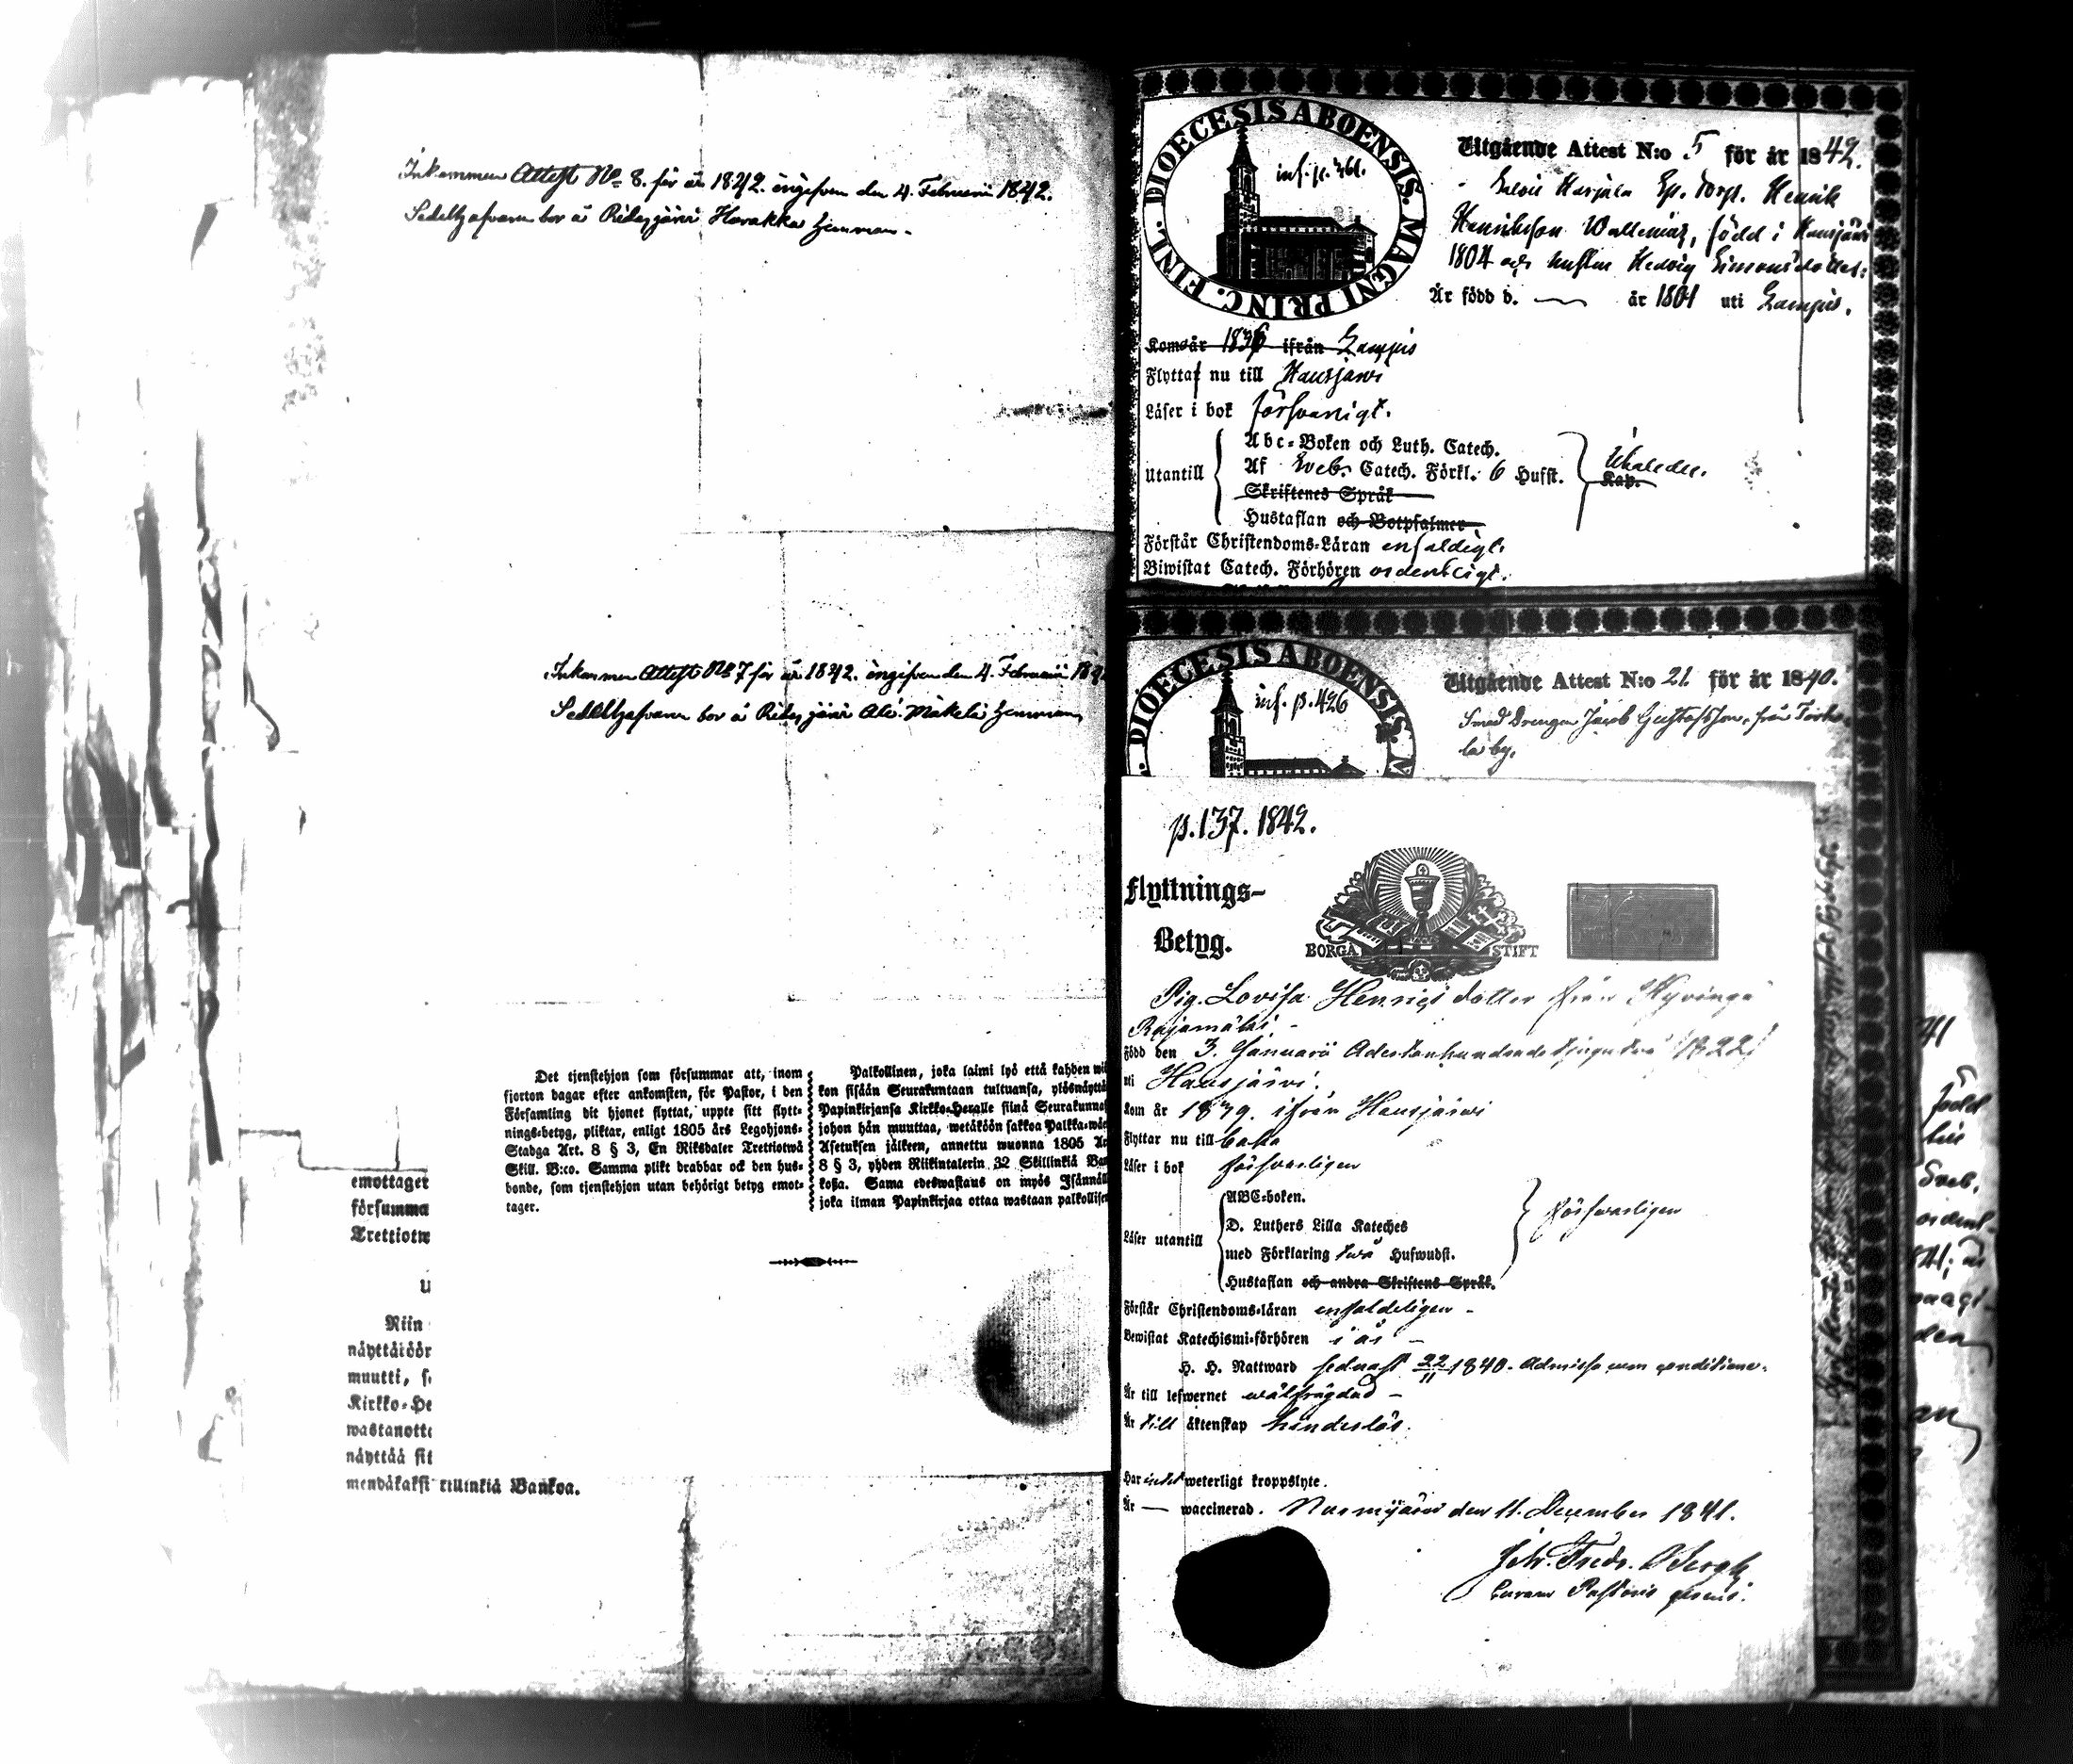 Inkommen Attest No 8. för år 1842. ingifven den 4. Februarii 1842.
Sedelhafvaren bor å Ridasjärvi Harakka hemman.
Inkommen Attest No 7 för år 1842. ingifven den 4. Februarii 184
Sedelhafvaren bor å Ridasjärvi Ali Mäkelä hemman
Det tjenstehjon som försummar att, inom
fjorton dagar efter ankomsten, för Pastor, i den
Församling dit hjonet flyttat, uppte sitt flytt-
nings-betyg, pliktar, enligt 1805 års Legohjons-
Stadga Art. 8 § 3, En Riksdaler Trettiotwå
Skill. B:co. Samma plikt drabbar ock den hus-
bonde, som tjenstehjon utan behörigt betyg emot-
tager.
Palkollinen, joka laimi lyö että kahden wii
kon sisään Seurakuntaan tultuansa, ylösnäyttä
Papinkirjansa Kirkko-Heralle siinä Seurakunnas
johon hän muuttaa, wetäköön sakkoa Palkka-wäe
Asetuksen jälkeen, annettu wuonna 1805 Ar
8 § 3, yhden Riikintalerin 32 Skillinkiä Ban
koßa. Sama edeswastaus on myös Isännäll
joka ilman Papinkirjaa ottaa wastaan palkollisen
emottager
försumma
Trettiotw
U
Niin
näyttäiöör
muutti, s
Kirkko-He
wastanotte
näyttää sit
mendäkaksi rillinkiä Bankoa.
DIOECESIS ABOENSIS. MAGNI PRINC. FINL.
inf. p. 361.
Utgående Attest N:o 5 för år 1842.
Harjula Sp. Torp. Henrik
Henriksson Wallenius, född i Hausjärvi
1804 och hustru Hedvig Simonsdotter:
Är född d. — år 1801 uti Lampis.
Kom år 1836 ifrån Lampis
Flyttar nu till Hausjärvi
Läser i bok försvarligt.
Utantill
Abc-Boken och Luth. Catech.
Af Sveb. Catech. Förkl. 6 Hufst.
Skriftenes Språk
Hustaflan och Botpsalmer.
Kap.
Förstår Christendoms-Läran enfaldigt.
Biwistat Catech. Förhören ordentligt.
DIOECESIS ABOENSIS. M
inf. p. 426
Utgående Attest N:o 21. för år 1840.
Smed Drengen Jacob Gustafsson, från
la by.
p. 137. 1842.
Flyttnings-
Betyg.
BORGÅ STIFT
Pig. Lovisa Henricsdotter från Hyvinge
Rajamäki. -
Född den 3. Januarii Adertonhundradetjugutvå /1822/
uti Hausjärvi.
Kom år 1839. ifrån Hausjärvi
Flyttar nu till baka
Läser i bok försvarligen
Läser utantill
ABC-boken.
D. Luthers Lilla Kateches
med Förklaring två Hufwudst.
Hustaflan och andra Skriftens Språk.
försvarligen
Förstår Christendoms-läran enfaldeligen -
Bewistat Katechismi-förhören i år -
H. H. Nattward sednast 22/11 1840. Admissa cum conditione.
Är till lefwernet wälfrägdad -
Är till äktenskap hinderlös.
Har intet weterligt kroppslyte.
Är — waccinerad. Nurmijärvi den 11. December 1841.
Joh. Fredr.
Curam Pastoris gerens.
41
född
Sveb.
den